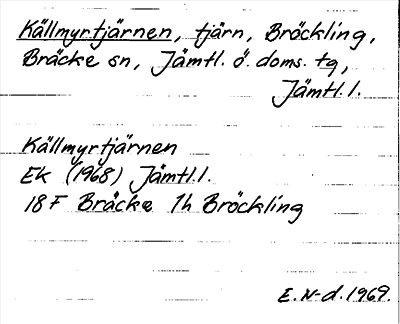 Källmyrtjärnen, tjärn, Bröckling,
Bräcke sn, Jämtl. ö. doms. tg,
Jämtl. l.
Källmyrtjärnen
Ek (1968) Jämtl. l.
18 F Bräcke 1h Bröckling
E. N-d. 1969.